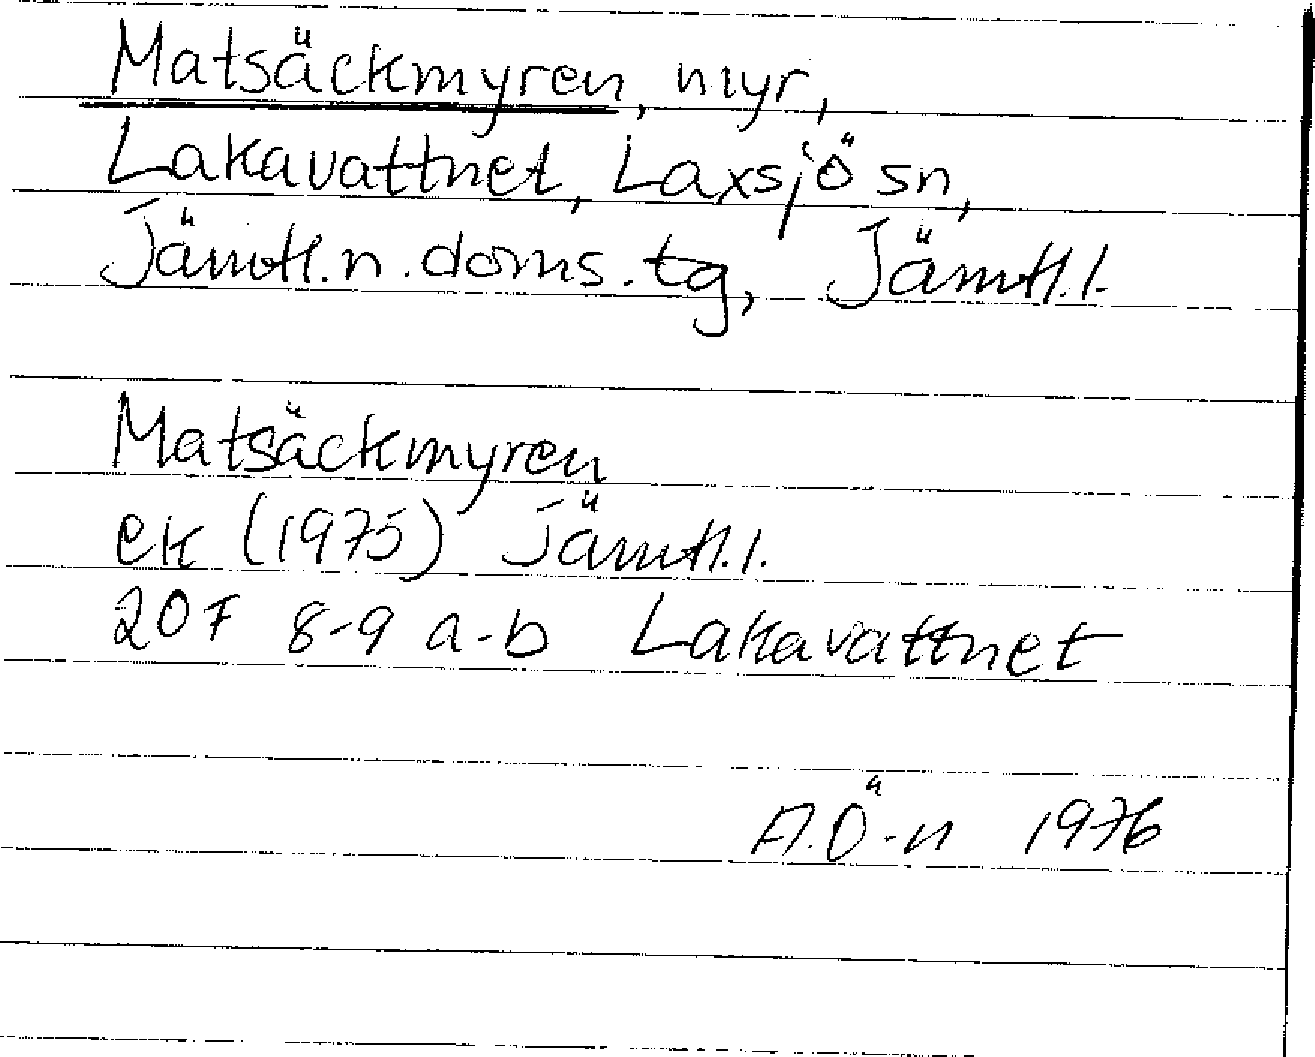 Matsäckmyren, myr,
Lakavattnet, Laxsjö sn,
Jämtl.n.doms.tg, Jämtl.l.
Matsäckmyren
ek (1975) Jämtl.l.
20F 8-9 a-b Lakavattnet
A.Ö-n 1976